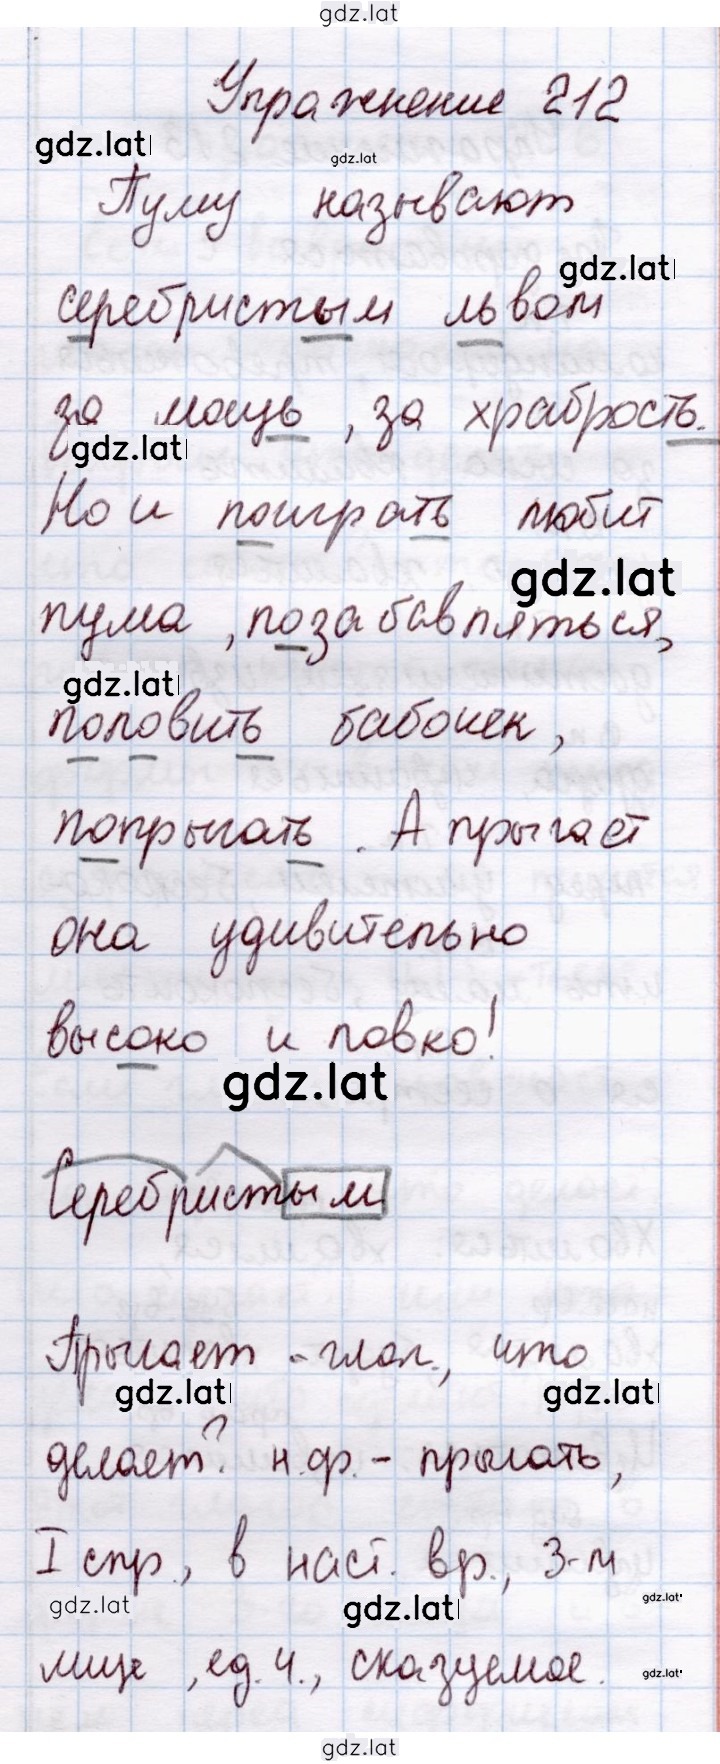 gdz.lat
Упражнение 212
gdz.lat
gdz.lat
Пуму называют
gdz.lat
серебристым львом
за мощь, за храбрость.
gdz.lat
Но и поиграть любит
gdz.lat
пума, позабавляться,
gdz.lat
половить бабочек,
попрыгать. А прыгает
она удивительно
высоко и ловко!
gdz.lat
Серебристым
Прыгает - глаг., что
gdz.lat gdz.lat
делает? н.ф. - прыгать,
I спр., в наст. вр., 3-м
gdz.lat gdz.lat gdz.lat
лице, ед.ч., сказуемое.
gdz.lat
gdz.lat